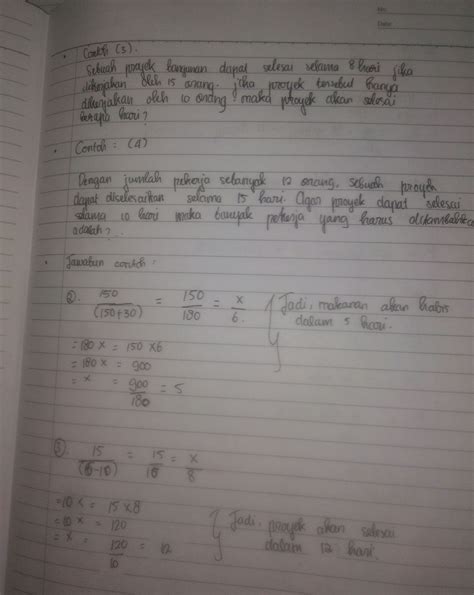 No:
Date:
• Contoh (3).
Sebuah proyek bangunan dapat selesai selama 8 hari jika
dikerjakan oleh 15 orang. jika proyek tersebut hanya
dikerjakan oleh 10 orang maka proyek akan selesai
berapa hari?
• Contoh : (4)
Dengan jumlah pekerja sebanyak 12 orang, sebuah proyek
dapat diselesaikan selama 15 hari. Agar proyek dapat selesai
selama 10 hari maka banyak pekerja yang harus ditambahkan
adalah?..
• Jawaban contoh :
②. 150/(150+30) = 150/180 = x/6. } Jadi, makanan akan habis
dalam 5 hari.
= 180 x = 150 x 6
= 180 x = 900
= x = 900/180 = 5
③. 15/(5-10) = 15/10 = x/8
= 10 x = 15 x 8
= 10 x = 120 } Jadi, proyek akan selesai
= x = 120/10 = 12 dalam 12 hari.